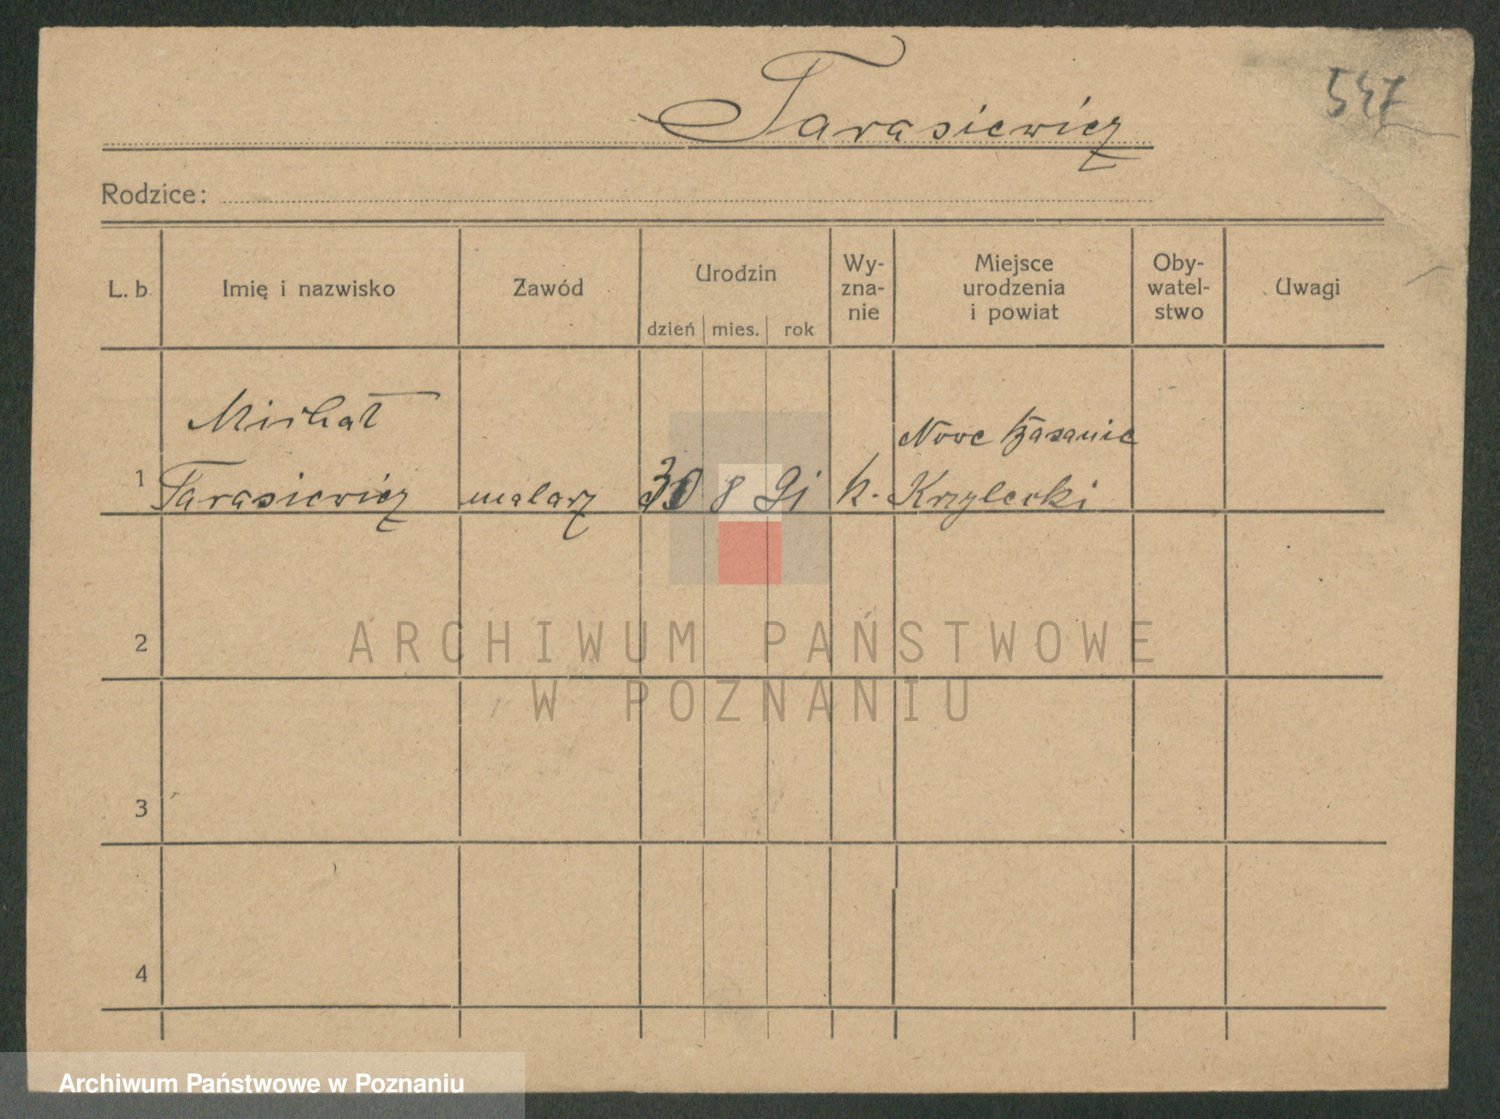 547
Tarasiewicz
Rodzice:
L. b. Imię i nazwisko Zawód Urodzin dzień mies. rok Wy-zna-nie Miejsce urodzenia i powiat Oby-watel-stwo Uwagi
Michał Nowe
1 Tarasiewicz malarz 30 8 91 k.
2
3
4
ARCHIWUM PAŃSTWOWE
W POZNANIU
Archiwum Państwowe w Poznaniu